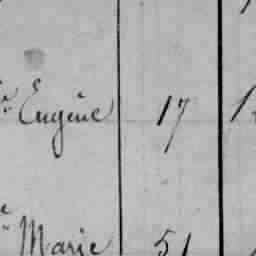 Eugène 17
Marie 51